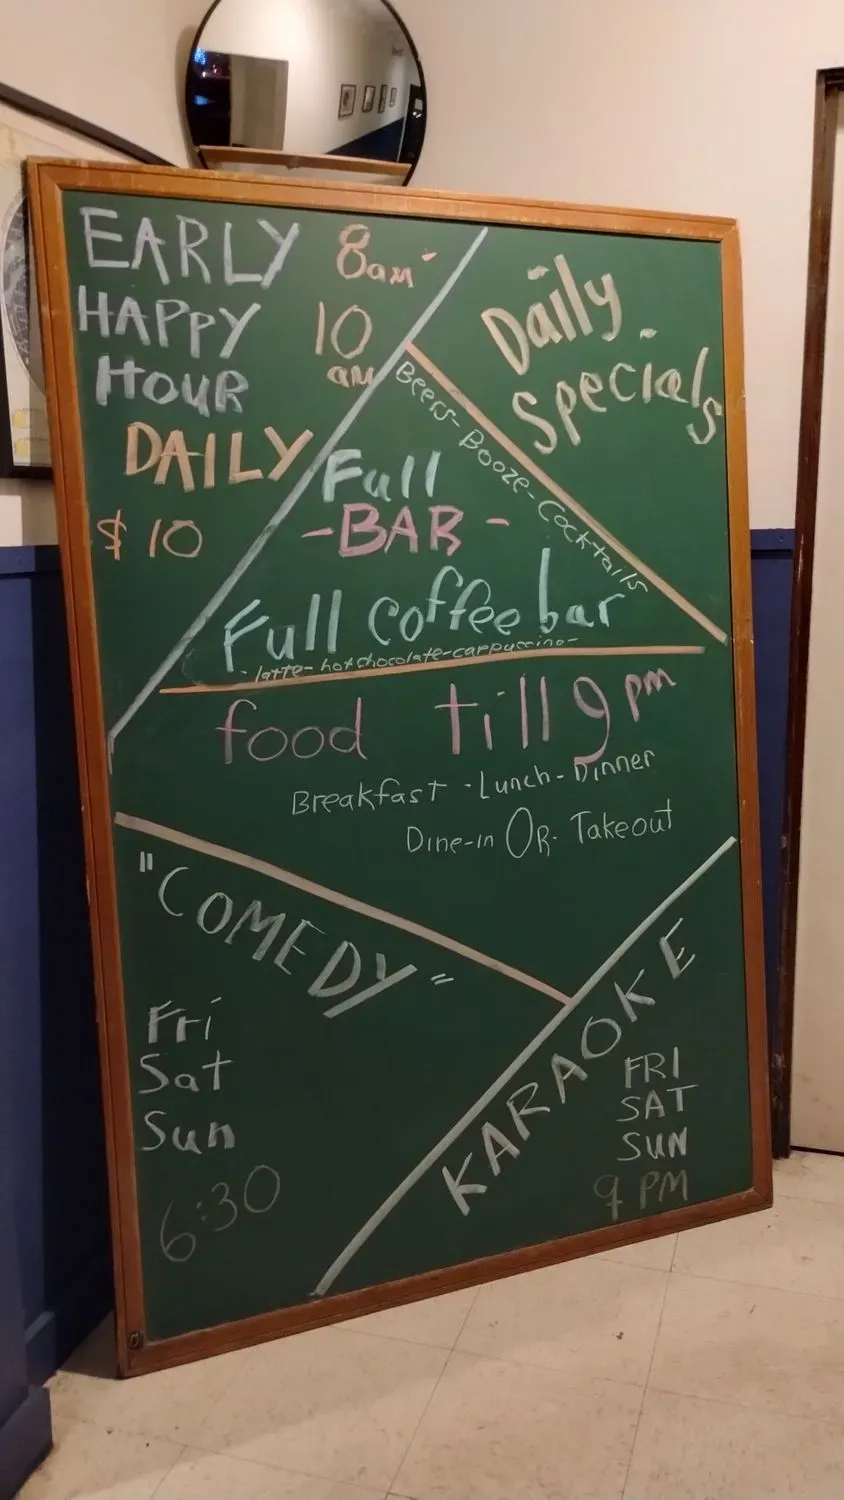 EARLY 8am-
HAPPY 10
HOUR am
DAILY
$10
Daily
Specials
Beers-Booze-Cocktails
Full
-BAR-
Full coffee bar
-latte-hotchocolate-cappuccino-
food till 9pm
Breakfast -Lunch-Dinner
Dine-in OR. Takeout
"COMEDY"
Fri
Sat
Sun
6:30
KARAOKE
FRI
SAT
SUN
9 PM